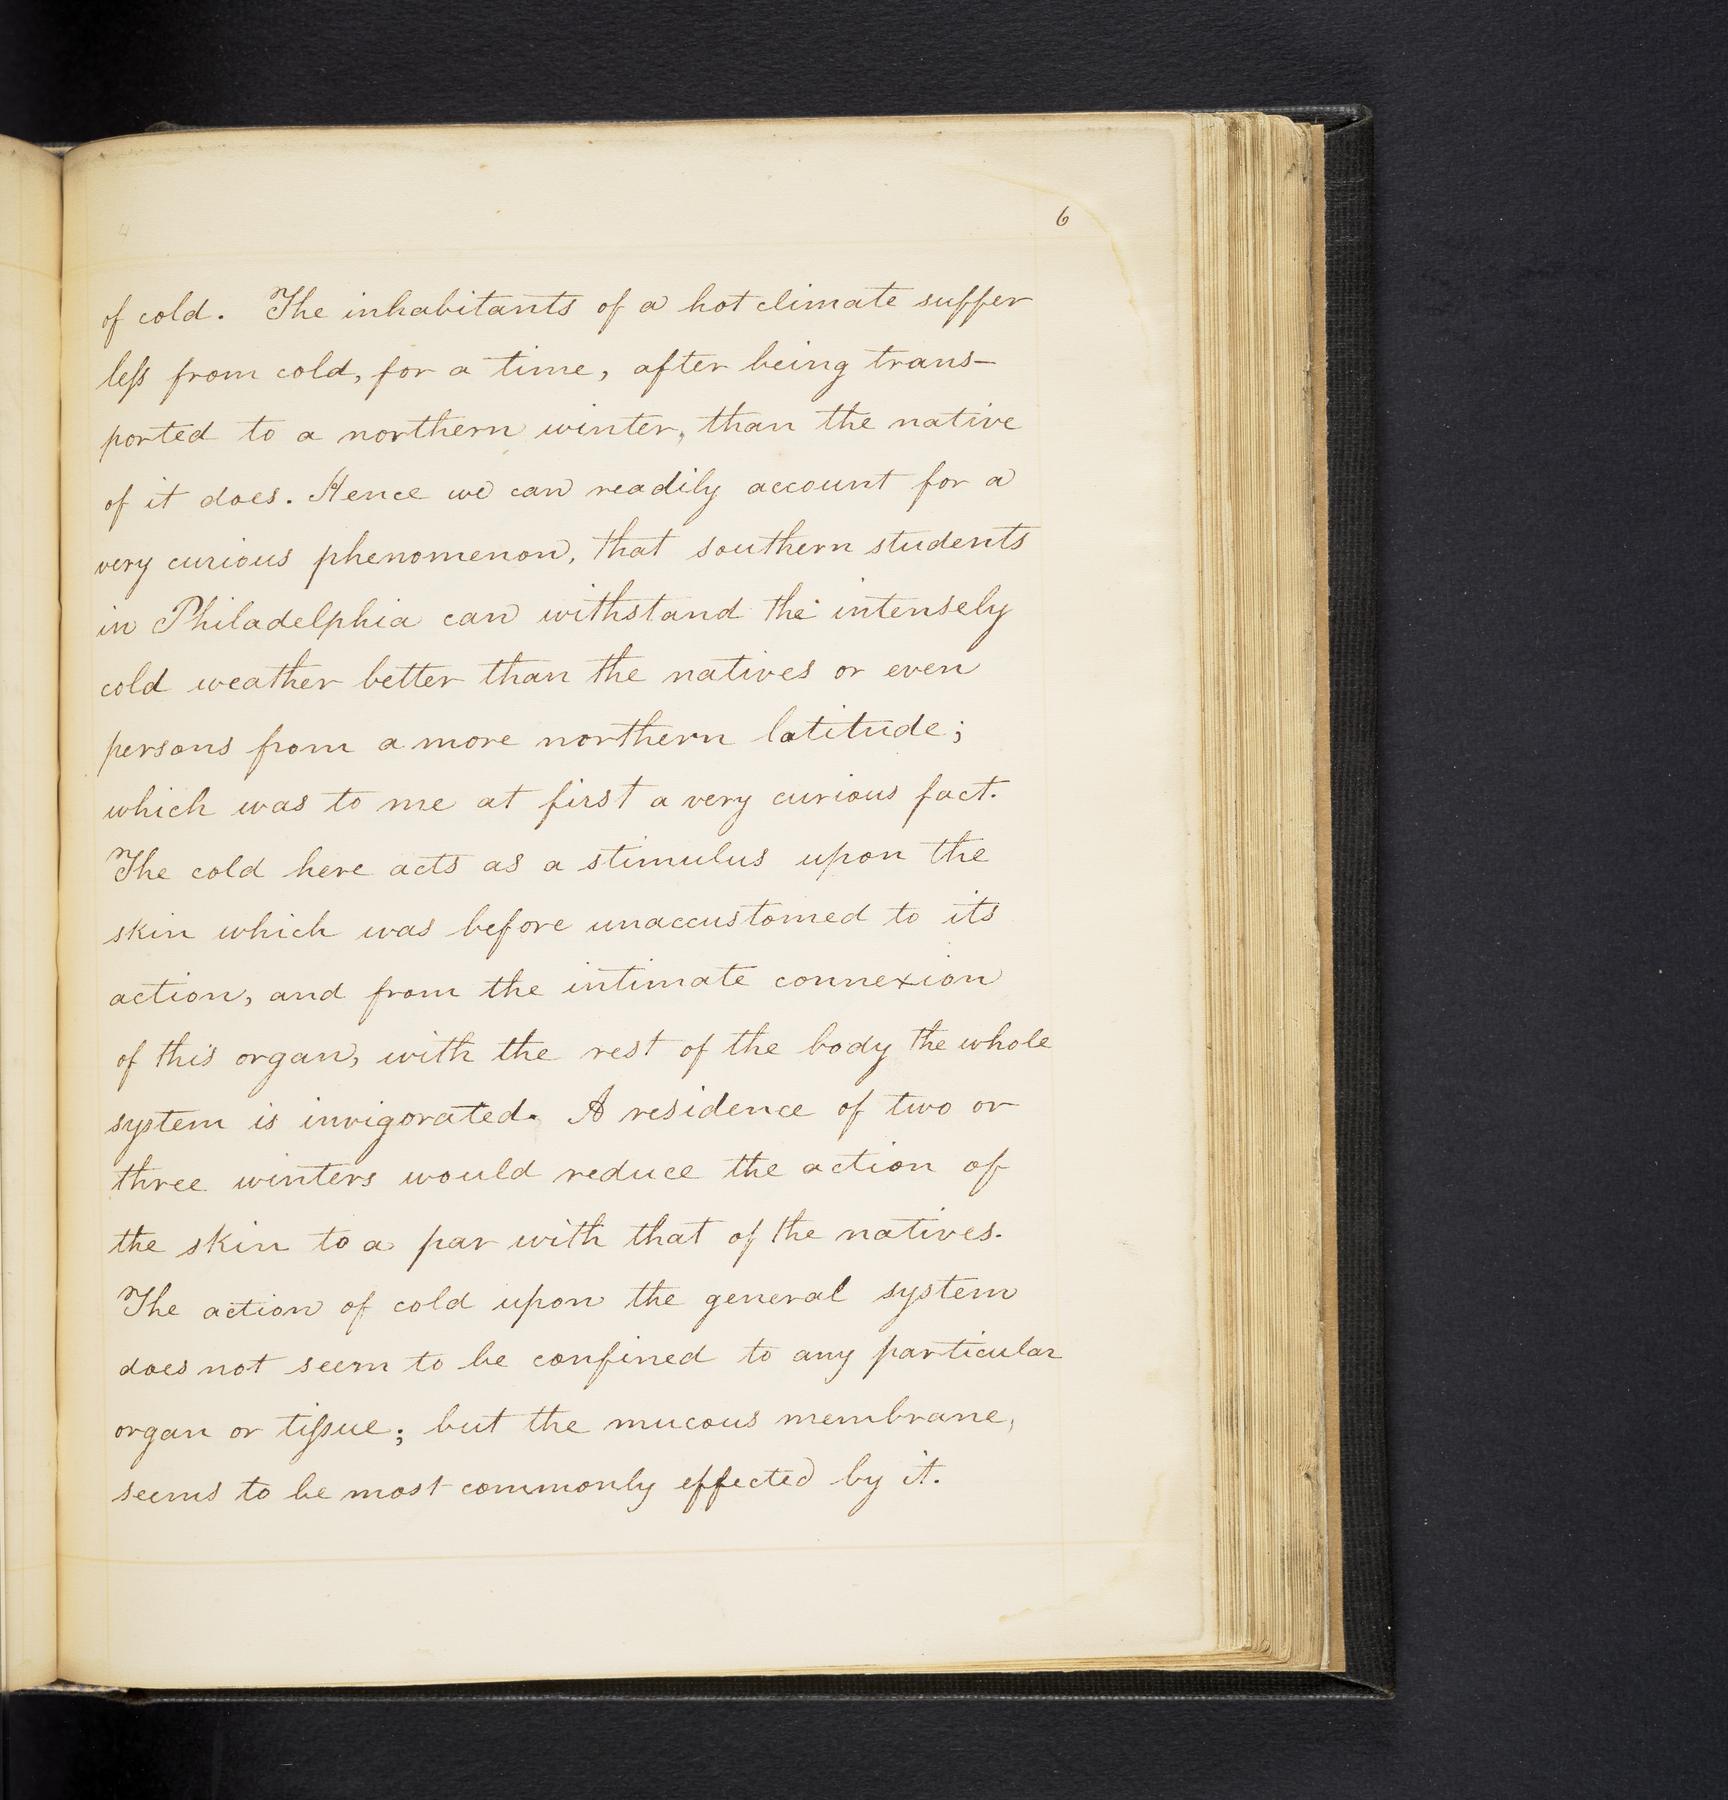 6
of cold. The inhabitants of a hot climate suffer
leſs from cold, for a time, after being trans-
ported to a northern winter, than the native
of it does. Hence we can readily account for a
very curious phenomenon, that southern students
in Philadelphia can withstand the intensely
cold weather better than the natives or even
persons from a more northern latitude;
which was to me at first a very curious fact.
The cold here acts as a stimulus upon the
skin which was before unaccustomed to its
action, and from the intimate connexion
of this organ, with the rest of the body the whole
system is invigorated. A residence of two or
three winters would reduce the action of
the skin to a par with that of the natives.
The action of cold upon the general system
does not seem to be confined to any particular
organ or tiſsue; but the mucous membrane,
seems to be most commonly effected by it.